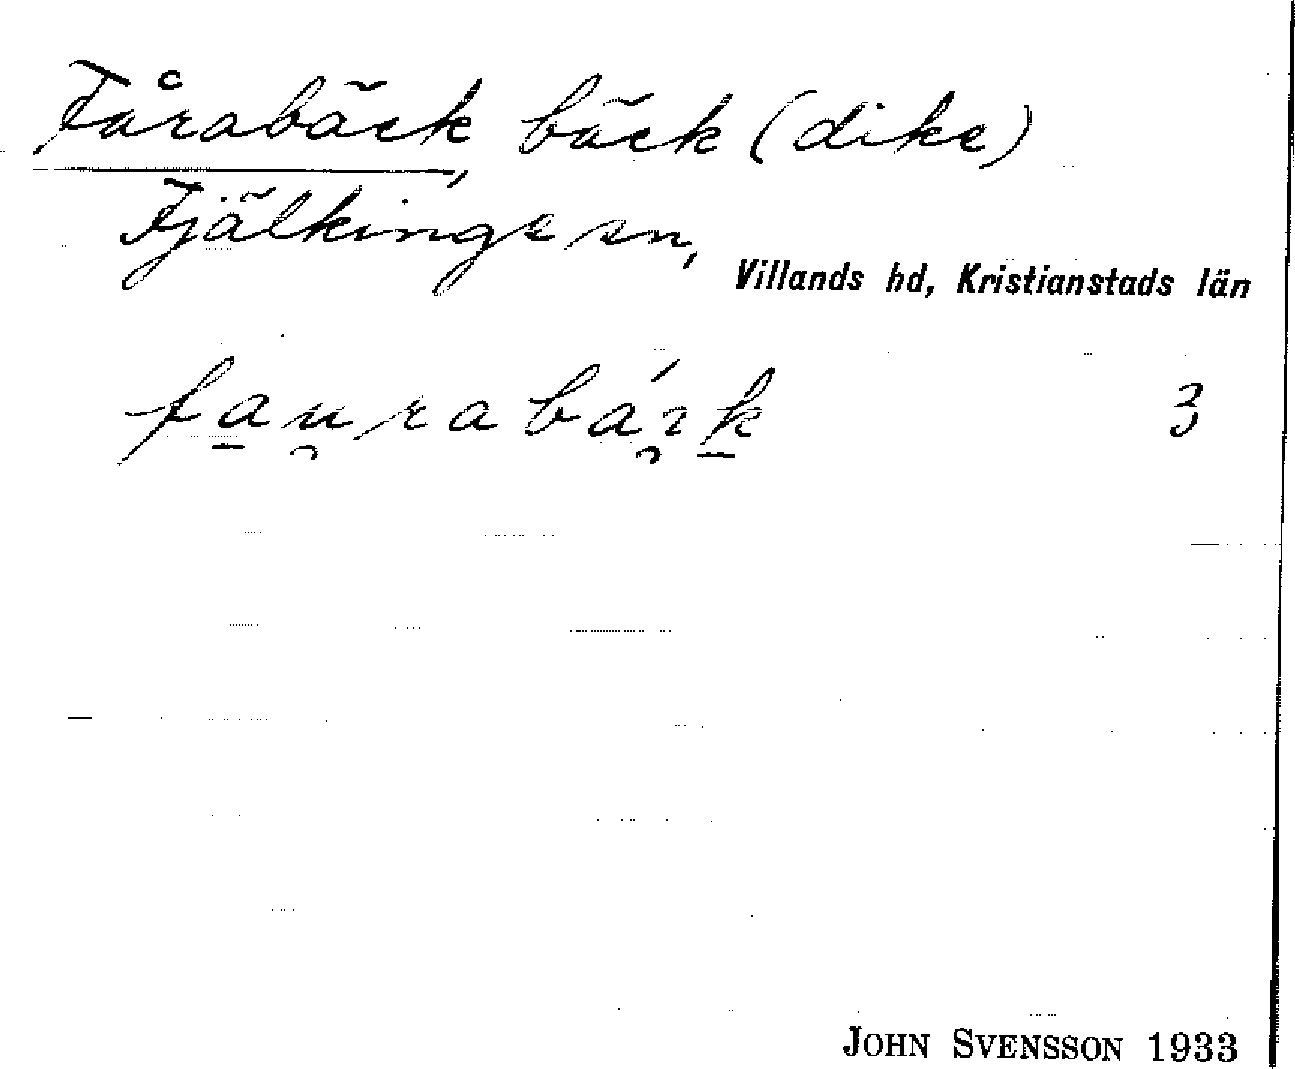 Fårabäck, bäck (dike)
Fjälkinge sn,
Villands hd, Kristianstads län
3
JOHN SVENSSON 1933